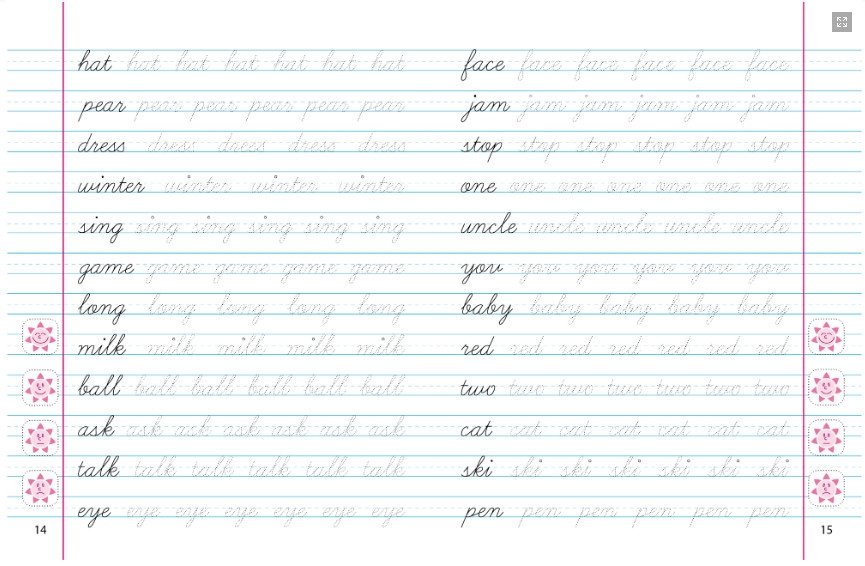 hat hat hat hat hat hat hat
pear pear pear pear pear pear
dress dress dress dress dress
winter winter winter winter
sing sing sing sing sing sing
game game game game game
long long long long long
milk milk milk milk milk
ball ball ball ball ball ball
ask ask ask ask ask ask ask
talk talk talk talk talk talk
eye eye eye eye eye eye eye
14
face face face face face face
jam jam jam jam jam jam
stop stop stop stop stop stop
one one one one one one one
uncle uncle uncle uncle uncle
you you you you you you
baby baby baby baby baby
red red red red red red red
two two two two two two two
cat cat cat cat cat cat cat
ski ski ski ski ski ski ski
pen pen pen pen pen pen
15